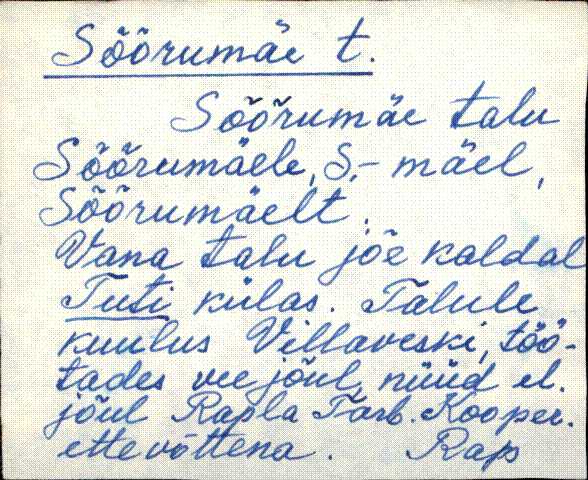 Sõõrumäe t.
Sõõrumäe talu
Sõõrumäele, S.- mäel,
Sõõrumäelt.
Vana talu jõe kaldal
Tuti külas. Talule
kuulus Villaveski, töö-
tades vee jõul, nüüd el.
jõul Rapla Tarb. Kooper.
ettevõttena. Rap